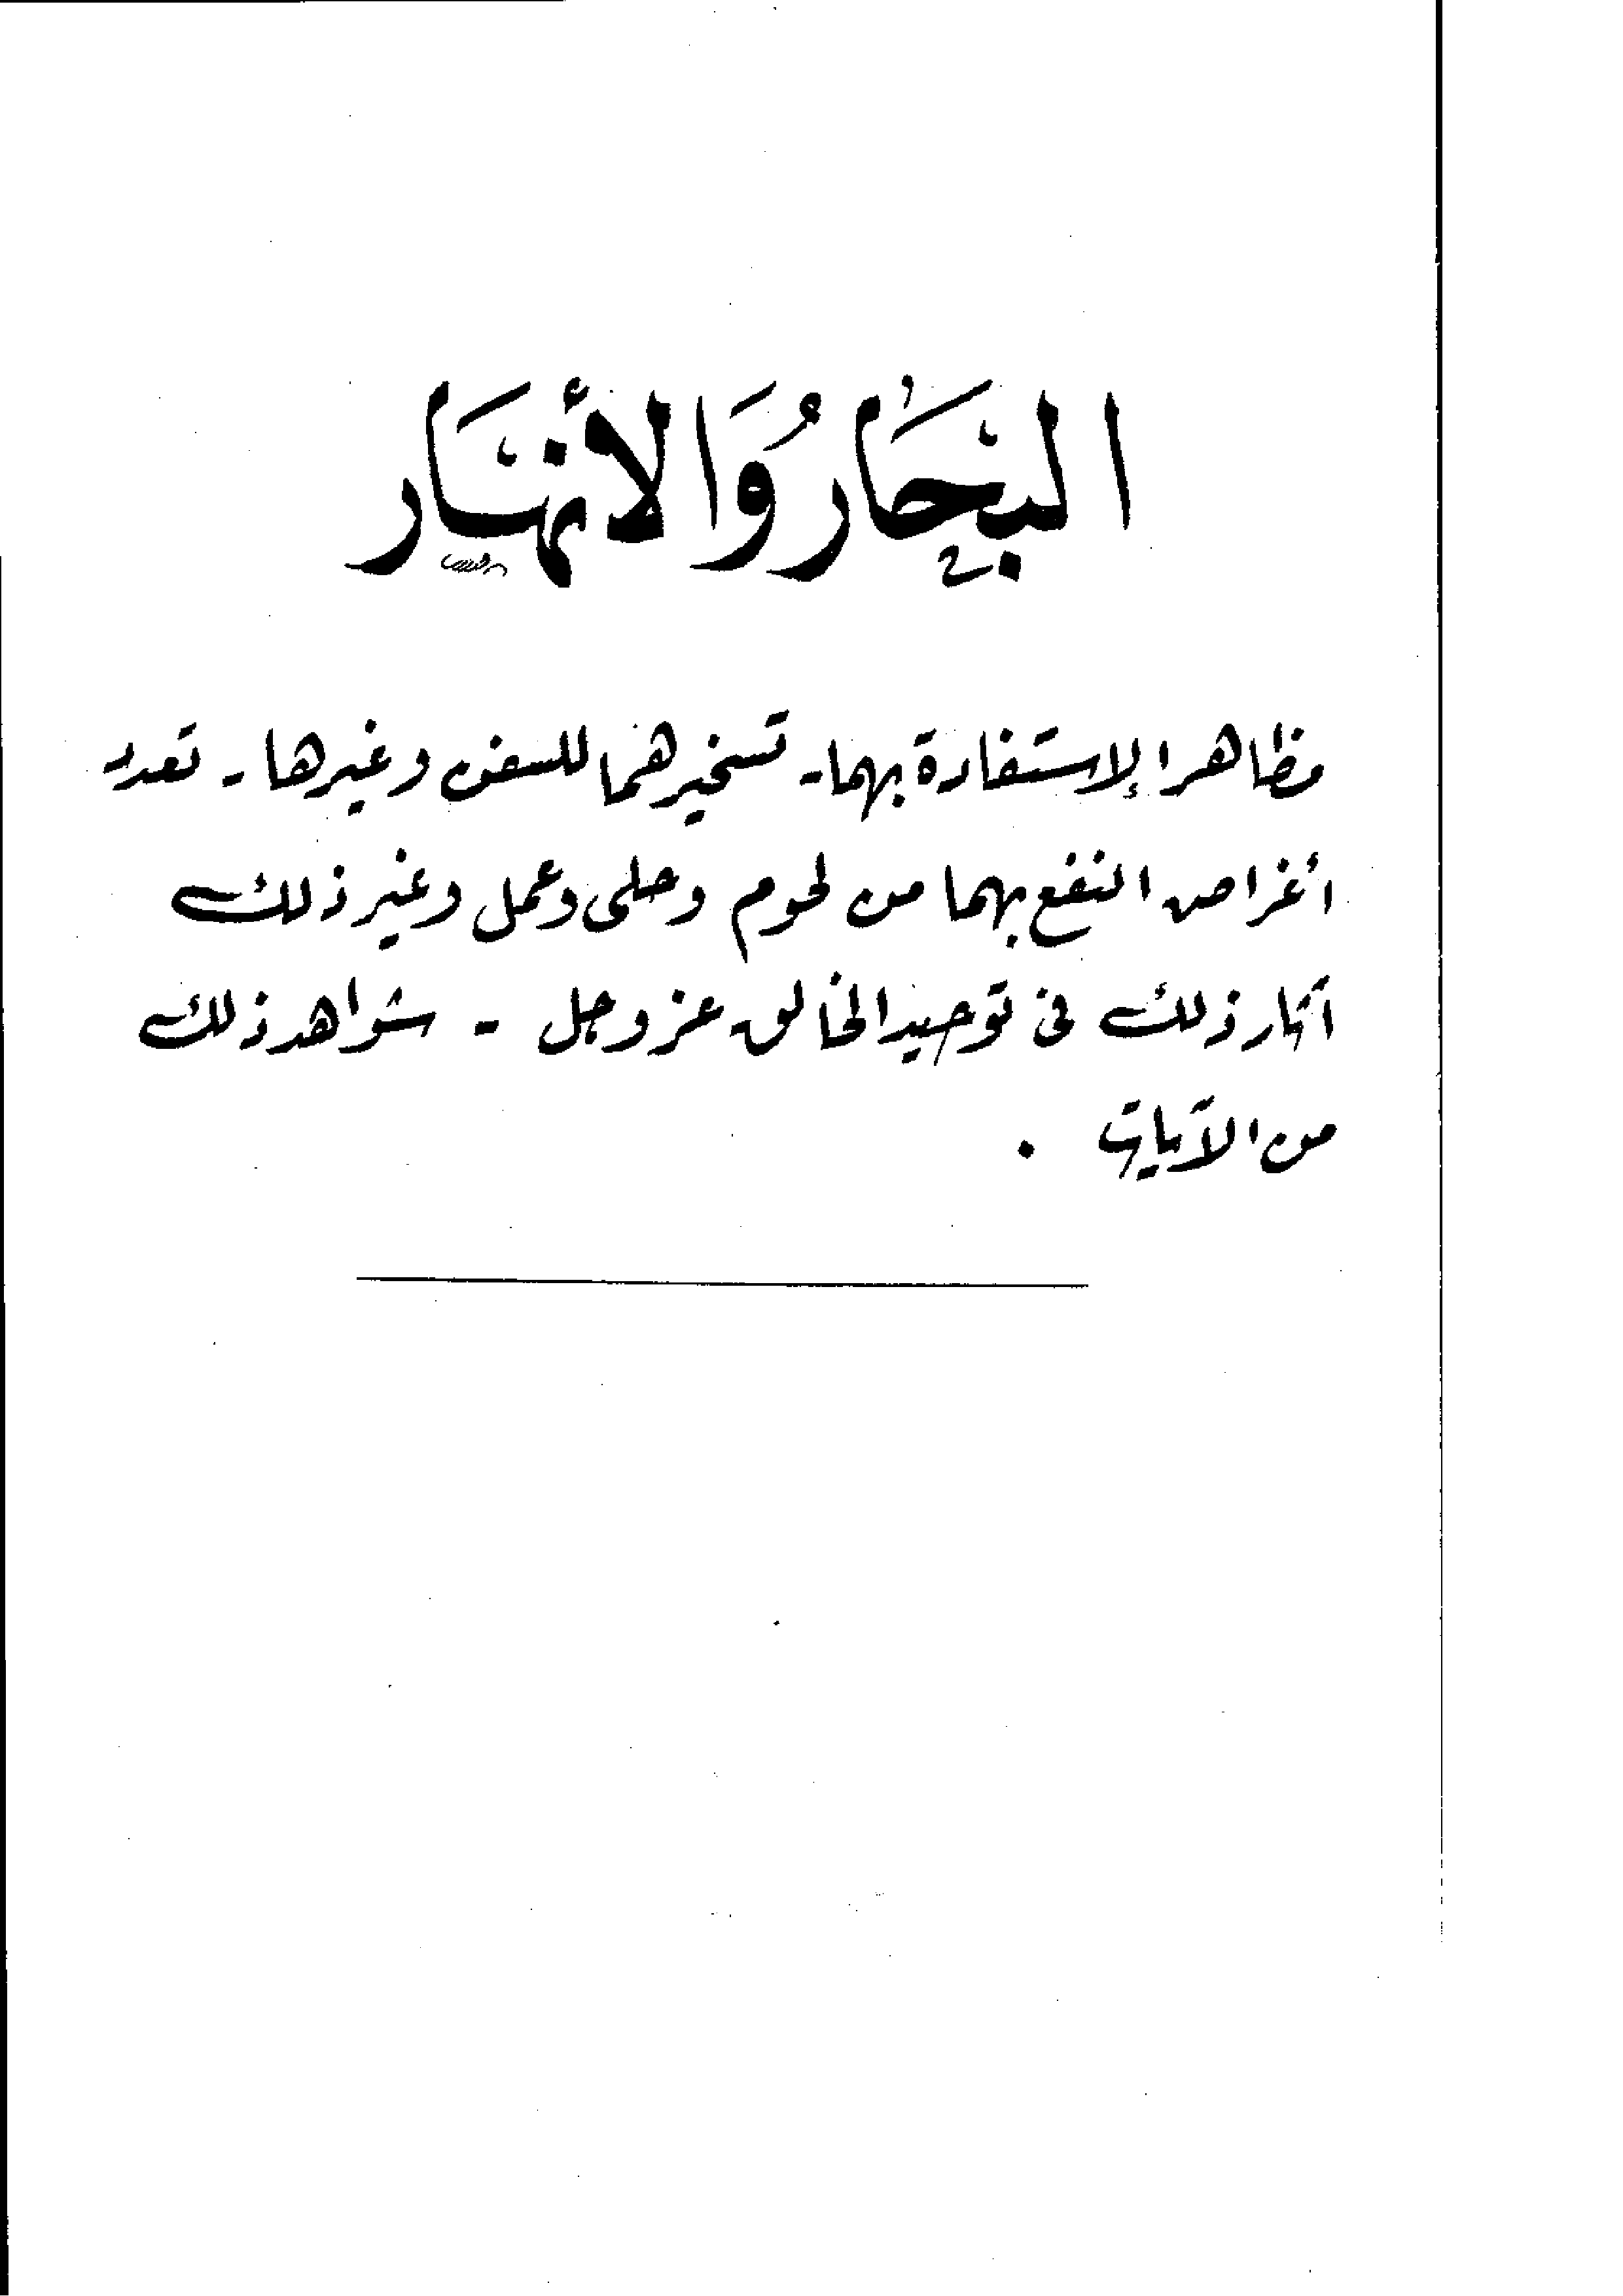 البحَارُ وَالأنهَار
مظاهر الإستفادة بهما - تسخيرهما للسفن وغيرها - تعدد
أغراض النفع بهما من لحوم وحلى وعمل وغير ذلك
آثار ذلك فى توحيد الخالق عز وجل - شواهد ذلك
من الآيات .